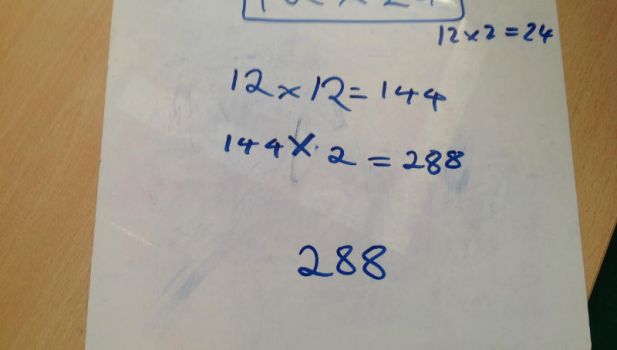 12×2=24
12×12=144
144×2=288
288